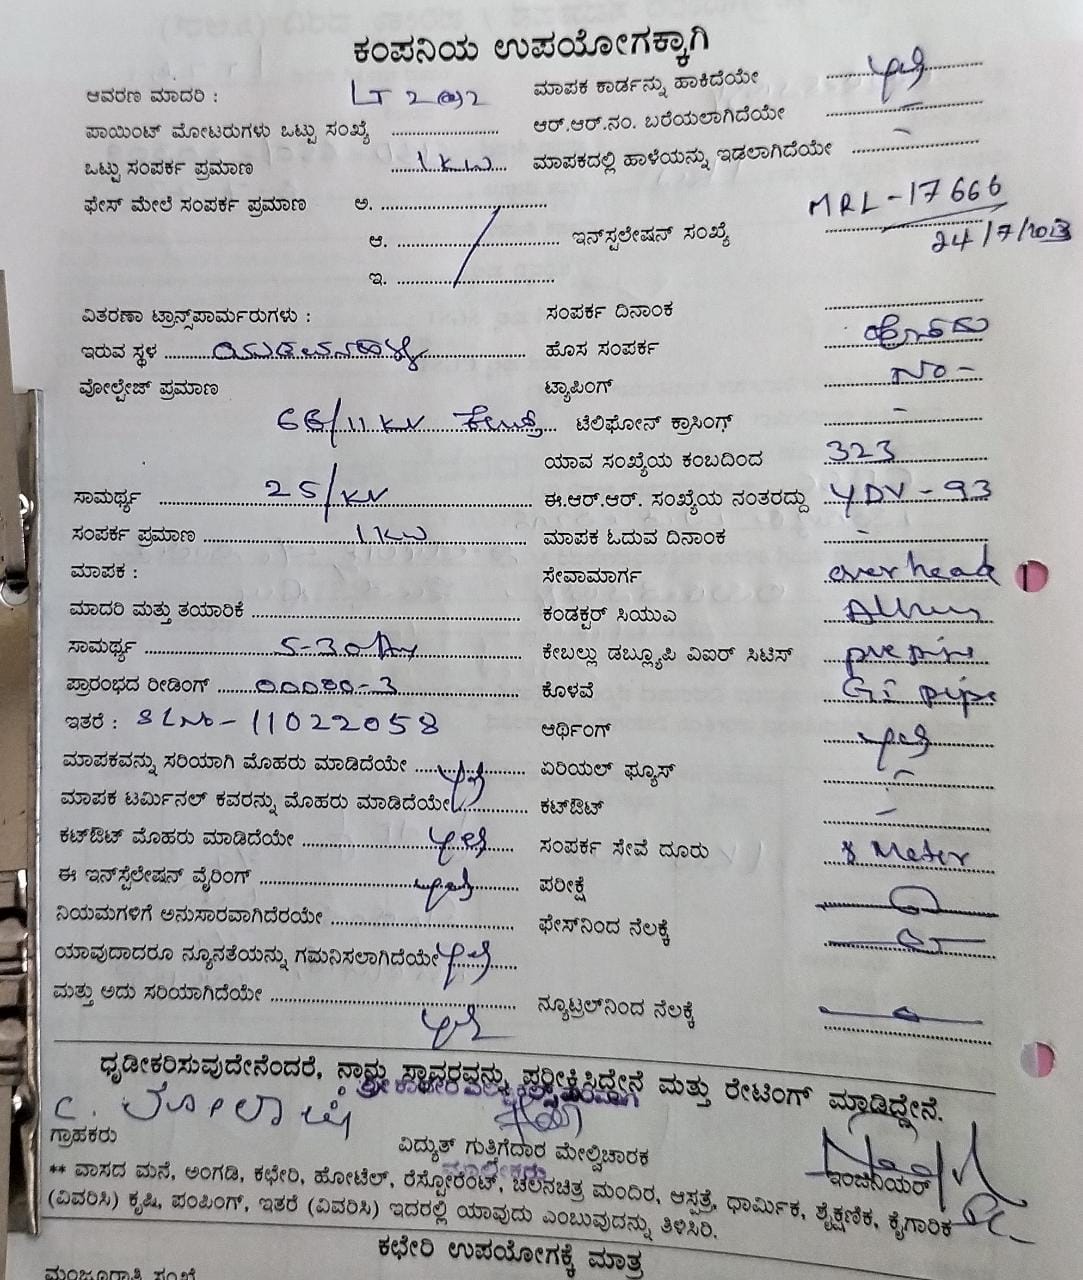 ಕಂಪನಿಯ ಉಪಯೋಗಕ್ಕಾಗಿ
ಆವರಣ ಮಾದರಿ : LT 2(a)2 ಮಾಪಕ ಕಾರ್ಡನ್ನು ಹಾಕಿದೆಯೇ
ಪಾಯಿಂಟ್ ಮೋಟರುಗಳು ಒಟ್ಟು ಸಂಖ್ಯೆ ಆರ್.ಆರ್.ನಂ. ಬರೆಯಲಾಗಿದೆಯೇ -
ಒಟ್ಟು ಸಂಪರ್ಕ ಪ್ರಮಾಣ 1KW ಮಾಪಕದಲ್ಲಿ ಹಾಳೆಯನ್ನು ಇಡಲಾಗಿದೆಯೇ -
ಫೇಸ್ ಮೇಲೆ ಸಂಪರ್ಕ ಪ್ರಮಾಣ ಅ.
ಆ. ಇನ್‌ಸ್ಟಲೇಷನ್ ಸಂಖ್ಯೆ MRL-17666
24/7/2013
ಇ.
ವಿತರಣಾ ಟ್ರಾನ್ಸ್‌ಪಾರ್ಮರುಗಳು : ಸಂಪರ್ಕ ದಿನಾಂಕ
ಇರುವ ಸ್ಥಳ ಹೊಸ ಸಂಪರ್ಕ
ವೋಲ್ಟೇಜ್ ಪ್ರಮಾಣ ಟ್ಯಾಪಿಂಗ್ No -
66/11 KV ಟೆಲಿಫೋನ್ ಕ್ರಾಸಿಂಗ್ -
ಯಾವ ಸಂಖ್ಯೆಯ ಕಂಬದಿಂದ 323
ಸಾಮರ್ಥ್ಯ 25/KV ಈ.ಆರ್.ಆರ್. ಸಂಖ್ಯೆಯ ನಂತರದ್ದು YDV-93
ಸಂಪರ್ಕ ಪ್ರಮಾಣ 1KW ಮಾಪಕ ಓದುವ ದಿನಾಂಕ -
ಮಾಪಕ : ಸೇವಾಮಾರ್ಗ over head
ಮಾದರಿ ಮತ್ತು ತಯಾರಿಕೆ ಕಂಡಕ್ಟರ್ ಸಿಯುಎ
ಸಾಮರ್ಥ್ಯ 5-30 ಕೇಬಲ್ಲು ಡಬ್ಲ್ಯೂಪಿ ವಿಐರ್ ಸಿಟಿಸ್
ಪ್ರಾರಂಭದ ರೀಡಿಂಗ್ ಕೊಳವೆ Gi pipe
ಇತರೆ : SLNo-11022058 ಆರ್ಥಿಂಗ್
ಮಾಪಕವನ್ನು ಸರಿಯಾಗಿ ಮೊಹರು ಮಾಡಿದೆಯೇ ಏರಿಯಲ್ ಫ್ಯೂಸ್ -
ಮಾಪಕ ಟರ್ಮಿನಲ್ ಕವರನ್ನು ಮೊಹರು ಮಾಡಿದೆಯೇ ಕಟ್‌ಔಟ್ -
ಕಟ್‌ಔಟ್ ಮೊಹರು ಮಾಡಿದೆಯೇ ಸಂಪರ್ಕ ಸೇವೆ ದೂರು Meter
ಈ ಇನ್‌ಸ್ಟೆಲೇಷನ್ ವೈರಿಂಗ್ ಪರೀಕ್ಷೆ
ನಿಯಮಗಳಿಗೆ ಅನುಸಾರವಾಗಿದೆರಯೇ ಫೇಸ್‌ನಿಂದ ನೆಲಕ್ಕೆ
ಯಾವುದಾದರೂ ನ್ಯೂನತೆಯನ್ನು ಗಮನಿಸಲಾಗಿದೆಯೇ
ಮತ್ತು ಅದು ಸರಿಯಾಗಿದೆಯೇ ನ್ಯೂಟ್ರಲ್‌ನಿಂದ ನೆಲಕ್ಕೆ
ಧೃಡೀಕರಿಸುವುದೇನೆಂದರೆ, ನಾನು ಸ್ಥಾವರವನ್ನು ಪರೀಕ್ಷಿಸಿದ್ದೇನೆ ಮತ್ತು ರೇಟಿಂಗ್ ಮಾಡಿದ್ದೇನೆ.
ಗ್ರಾಹಕರು ವಿದ್ಯುತ್ ಗುತ್ತಿಗೆದಾರ ಮೇಲ್ವಿಚಾರಕ ಇಂಜಿನಿಯರ್
ಮಾಲೀಕರು
** ವಾಸದ ಮನೆ, ಅಂಗಡಿ, ಕಛೇರಿ, ಹೋಟೆಲ್, ರೆಸ್ಟೋರೆಂಟ್, ಚಲನಚಿತ್ರ ಮಂದಿರ, ಆಸ್ಪತ್ರೆ, ಧಾರ್ಮಿಕ, ಶೈಕ್ಷಣಿಕ, ಕೈಗಾರಿಕ
(ವಿವರಿಸಿ) ಕೃಷಿ, ಪಂಪಿಂಗ್, ಇತರೆ (ವಿವರಿಸಿ) ಇದರಲ್ಲಿ ಯಾವುದು ಎಂಬುವುದನ್ನು ತಿಳಿಸಿರಿ.
ಕಛೇರಿ ಉಪಯೋಗಕ್ಕೆ ಮಾತ್ರ